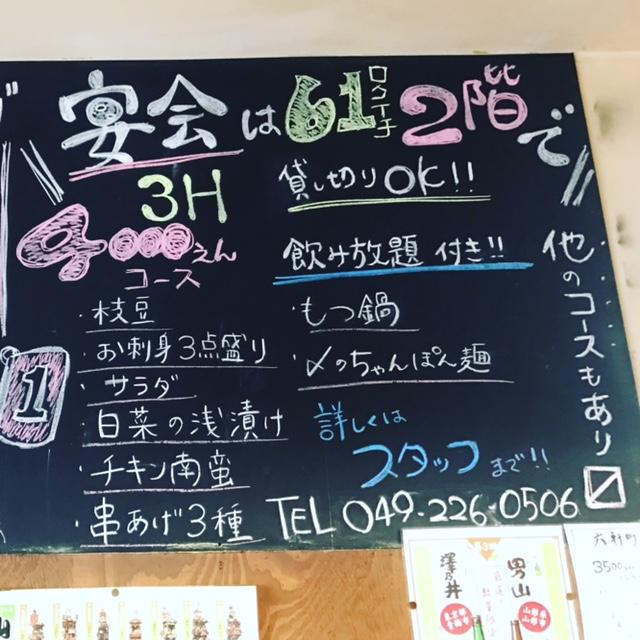 宴会は61ロクイチ2階で
3H
4000えん
コース
・枝豆
・お刺身3点盛り
・サラダ
・白菜の浅漬け
・チキン南蛮
・串あげ3種
貸し切りOK!!
飲み放題 付き!!
・もつ鍋
・〆のちゃんぽん麺
詳しくは
スタッフまで!!
TEL 049-226-0506
他のコースもあり
1
澤乃井
男山
3500